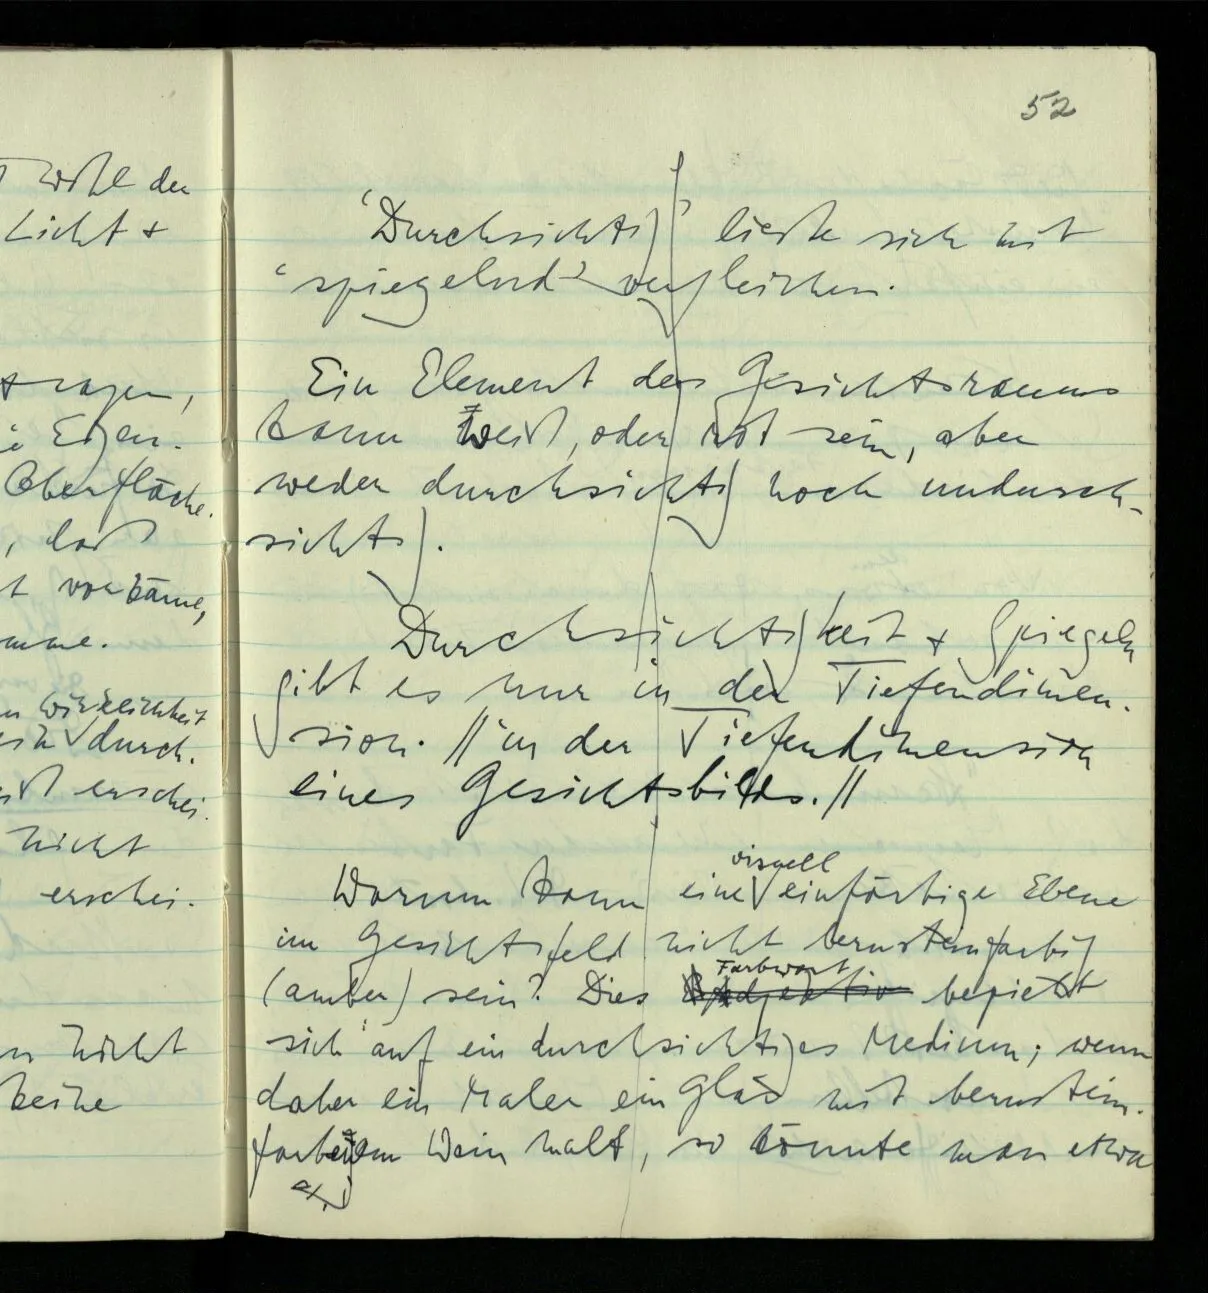 wohl der
Licht +
tragen,
Eigen-
Oberfläche.
, daß
vorkäme,
Wirklichkeit
durch.
erschei.
nicht
erschei.
nicht
keine
52
'Durchsichtig' ließe sich mit
'spiegelnd' vergleichen.
Ein Element des Gesichtsraums
kann weiß, oder rot sein, aber
weder durchsichtig noch undurch-
sichtig.
Durchsichtigkeit + Spiegeln
gibt es nur in der Tiefendimen-
sion. // in der Tiefendimension
eines Gesichtsbilds. //
visuell
Warum kann eine einfärbige Ebene
im Gesichtsfeld nicht bernsteinfarbig
Farbwort
(amber) sein? Dies Adjektiv bezieht
sich auf ein durchsichtiges Medium; wenn
daher ein Maler ein Glas mit bernstein-
farbigem Wein malt, so könnte man etwa